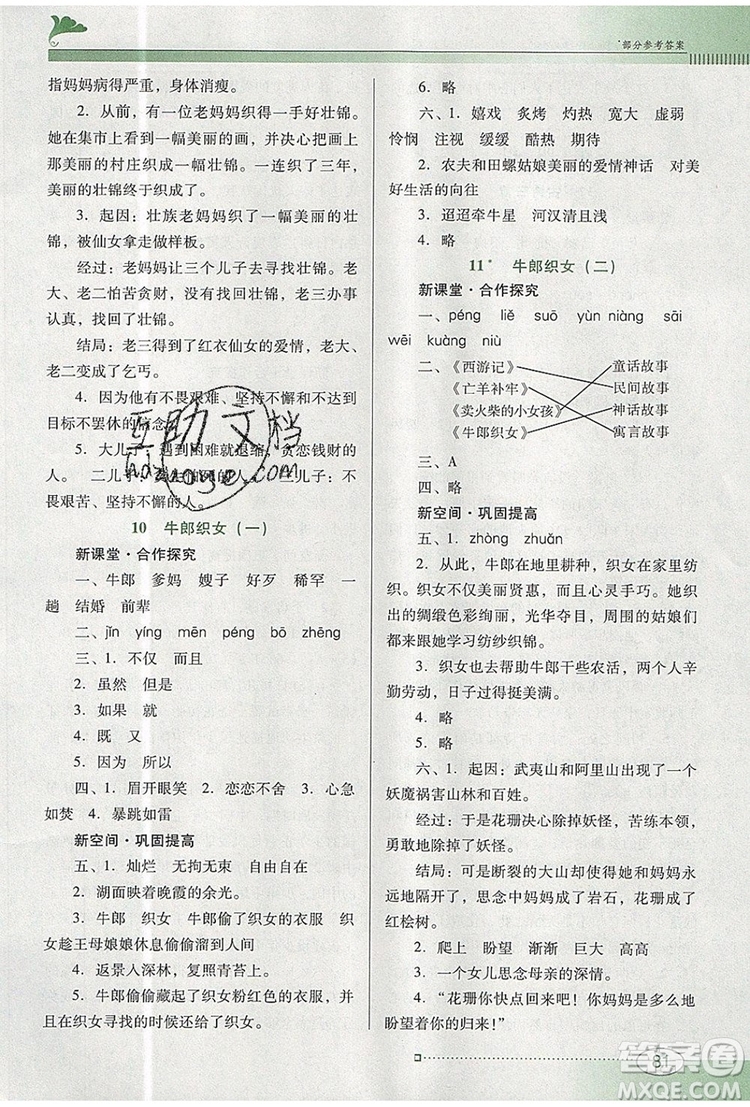 部分参考答案
指妈妈病得严重，身体消瘦。
2. 从前，有一位老妈妈织得一手好壮锦。
她在集市上看到一幅美丽的画，并决定织出
那美丽的村庄比画还美丽。一连织了三年，
美丽的壮锦终于织成了。
3. 起因：壮族老妈妈织了一幅美丽的壮
锦，被仙女拿走做样板。
经过：老妈妈让三个儿子去寻找壮锦。老
大、老二怕苦贪财，认为可以用钱办事
认真，找回了壮锦。
结局：老三得到了红衣仙女的爱情，老大、
老二变成了乞丐。
4. 因为他有不畏艰难、坚持不懈和不达到
目标不罢休的信念。
5. 大儿子：遇到困难就退缩，贪恋钱财的
人。
畏艰苦、坚持不懈的人。
10 牛郎织女（一）
新课堂·合作探究
一、牛郎 爹妈 嫂子 好歹 稀罕 一
趟 结婚 前辈
二、jǐn yíng mēn péng bō zhēng
三、1. 不仅 而且
2. 虽然 但是
3. 如果 就
4. 既 又
5. 因为 所以
四、1. 眉开眼笑 2. 恋恋不舍 3. 心急
如焚 4. 暴跳如雷
新空间·巩固提高
五、1. 灿烂 无拘无束 自由自在
2. 湖面映着晚霞的余光。
3. 牛郎 织女 牛郎偷了织女的衣服 织
女趁王母娘娘休息偷偷溜到人间
4. 返景入深林，复照青苔上。
5. 牛郎偷偷藏起了织女粉红色的衣服，并
且在织女寻找的时候还给了织女。
6. 略
六、1. 嬉戏 炙烤 灼热 宽大 虚弱
怜悯 注视 缓缓 酷热 期待
2. 农夫和田螺姑娘美丽的爱情神话 对美
好生活的向往
3. 迢迢牵牛星 河汉清且浅
4. 略
11* 牛郎织女（二）
新课堂·合作探究
一、péng liě suō yùn niàng sāi
wēi kuāng niù
二、《西游记》 童话故事
《亡羊补牢》 民间故事
《卖火柴的小女孩》 神话故事
《牛郎织女》 寓言故事
三、A
四、略
新空间·巩固提高
五、1. zhòng zhuǎn
2. 从此，牛郎在地里耕种，织女在家里纺
织。织女不仅美丽贤惠，而且心灵手巧。她织
出的绸缎色彩绚丽，光华夺目，周围的姑娘们
都来跟她学习纺纱织锦。
3. 织女也去帮助牛郎干些农活，两个人辛
勤劳动，日子过得挺美满。
4. 略
5. 略
六、1. 起因：武夷山和阿里山出现了一个
妖魔祸害山林和百姓。
经过：于是花珊决心除掉妖怪，苦练本领，
勇敢地除掉了妖怪。
结局：可是断裂的大山却使得她和妈妈永
远地隔开了，思念中妈妈成了岩石，花珊成了
红桧树。
2. 爬上 盼望 渐渐 巨大 高高
3. 一个女儿思念母亲的深情。
4. “花珊你快点回来吧！你妈妈是多么地
盼望着你的归来！”
81
互助文档
答案圈
MXQE.COM